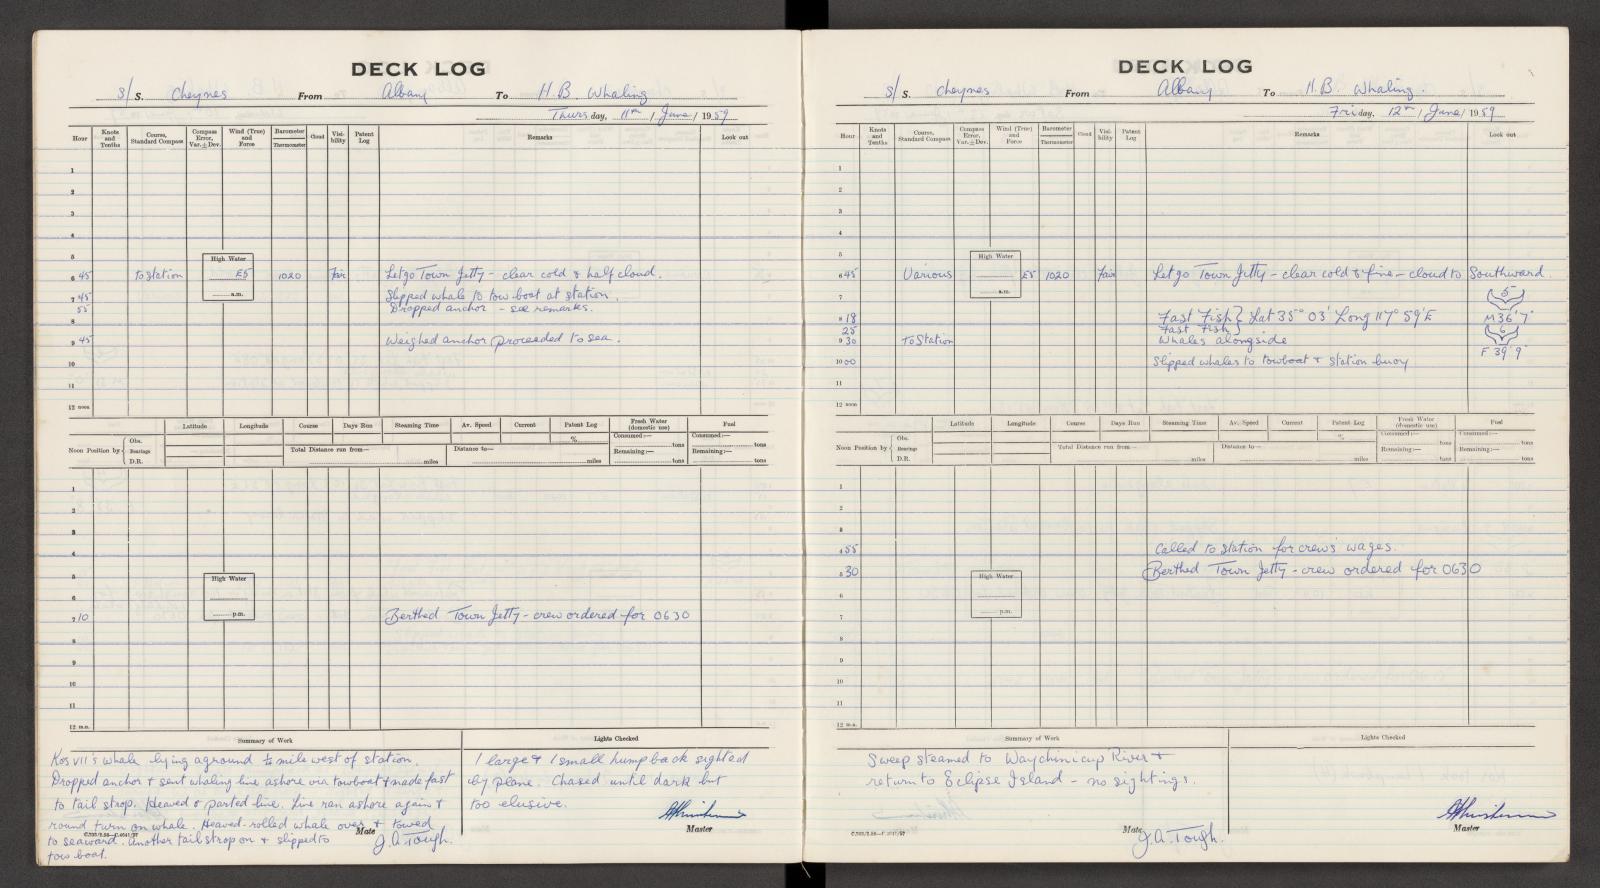 DECK LOG
S/ S. Cheynes From Albany To H.B. Whaling
Thurs day, 11th / June / 1959
Hour Knots and Tenths Course, Standard Compass Compass Error, Var. ± Dev. Wind (True) and Force Barometer Thermometer Cloud Visibility Patent Log Remarks Look out
1
2
3
4
5
High Water
6 45 to Station E5 1020 Fair Let go Town Jetty - clear cold & half cloud.
a.m.
7 45 Slipped whale to tow boat at station.
55 Dropped anchor - see remarks.
8
9 45 Weighed anchor proceeded to sea.
10
11
12 noon
Latitude Longitude Course Days Run Steaming Time Av. Speed Current Patent Log Fresh Water (domestic use) Fuel
Noon Position by Obs. Bearings D.R. % Consumed:— tons Consumed:—
Total Distance run from— miles Distance to— miles Remaining:— tons Remaining:— tons
1
2
3
4
5
High Water
6
p.m.
7 10 Berthed Town Jetty - crew ordered for 0630
8
9
10
11
12 m.n.
Summary of Work
Kos VII's whale lying aground ½ mile west of station.
Dropped anchor & sent whaling line ashore via towboat & made fast
to tail strop. Heaved & parted line. Line ran ashore again &
round turn on whale. Heaved-rolled whale over & towed
to seaward. Another tail strop on & slipped to
tow boat.
Mate J.A. Tough.
Lights Checked
1 large & 1 small humpback sighted
by plane. Chased until dark but
too elusive.
Master
DECK LOG
S/ S. Cheynes From Albany To H.B. Whaling.
Fri day, 12th / June / 1959
Hour Knots and Tenths Course, Standard Compass Compass Error, Var. ± Dev. Wind (True) and Force Barometer Thermometer Cloud Visibility Patent Log Remarks Look out
1
2
3
4
5
High Water
6 45 Various E5 1020 Fair Let go Town Jetty - clear cold & fine - cloud to Southward.
a.m.
7 5
8 18 Fast Fish } Lat 35° 03' Long 117° 59' E M 36' 7"
25 Fast Fish } 6
9 30 To Station Whales alongside F 39' 9"
10 00 Slipped whales to towboat & station buoy
11
12 noon
Latitude Longitude Course Days Run Steaming Time Av. Speed Current Patent Log Fresh Water (domestic use) Fuel
Noon Position by Obs. Bearings D.R. % Consumed:— tons Consumed:—
Total Distance run from— miles Distance to— miles Remaining:— tons Remaining:— tons
1
2
3
4 55 Called to station for crew's wages.
5 30 Berthed Town Jetty - crew ordered for 0630
High Water
6
p.m.
7
8
9
10
11
12 m.n.
Summary of Work
Sweep steamed to Waychinicup River &
return to Eclipse Island - no sightings.
Mate J.A. Tough.
Lights Checked
Master